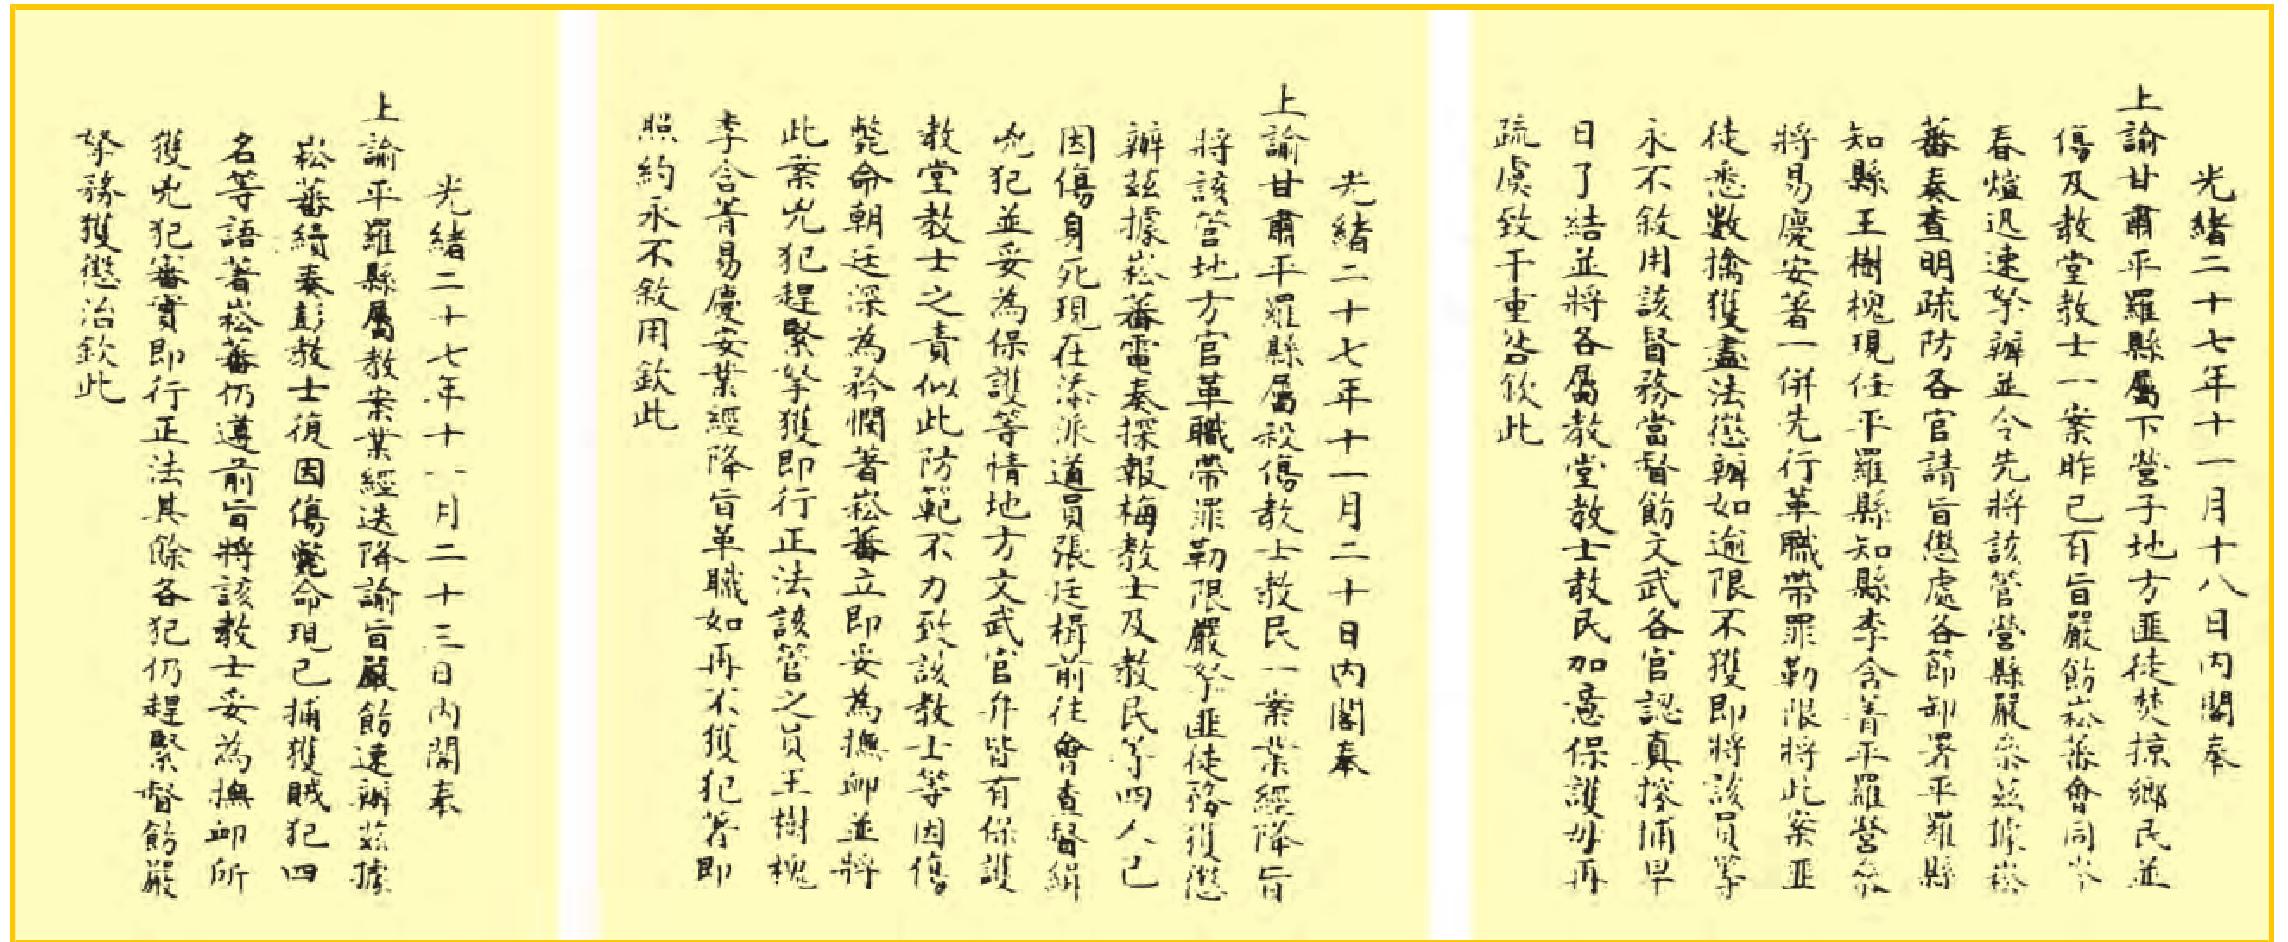 光緒二十七年十一月十八日內閣奉
上諭甘肅平羅縣屬下營子地方匪徒焚掠鄉民並
傷及教堂教士一案昨已有旨嚴飭崧蕃會同岑
春煊迅速拏辦並令先將該管營縣嚴參茲據崧
蕃奏查明疏防各官請旨懲處各節卸署平羅縣
知縣王樹槐現任平羅縣知縣李含菁平羅營參
將易慶安著一併先行革職帶罪勒限將此案匪
徒悉數擒獲盡法懲辦如逾限不獲即將該員等
永不敘用該督務當督飭文武各官認真搜捕早
日了結並將各屬教堂教士教民加意保護毋再
疏虞致干重咎欽此
光緒二十七年十一月二十日內閣奉
上諭甘肅平羅縣屬殺傷教士教民一案業經降旨
將該管地方官革職帶罪勒限嚴拏匪徒務獲懲
辦茲據崧蕃電奏探報梅教士及教民等四人已
因傷身死現在添派道員張廷楫前往會查督緝
兇犯並妥為保護等情地方文武官弁皆有保護
教堂教士之責似此防範不力致該教士等因傷
斃命朝廷深為矜憫著崧蕃立即妥為撫卹並將
此案兇犯趕緊拏獲即行正法該管之員王樹槐
李含菁易慶安業經降旨革職如再不獲犯著即
照約永不敘用欽此
光緒二十七年十一月二十三日內閣奉
上諭平羅縣屬教案業經迭降諭旨嚴飭速辦茲據
崧蕃續奏彭教士復因傷斃命現已捕獲賊犯四
名等語著崧蕃仍遵前旨將該教士妥為撫卹所
獲兇犯審實即行正法其餘各犯仍趕緊督飭嚴
拏務獲懲治欽此